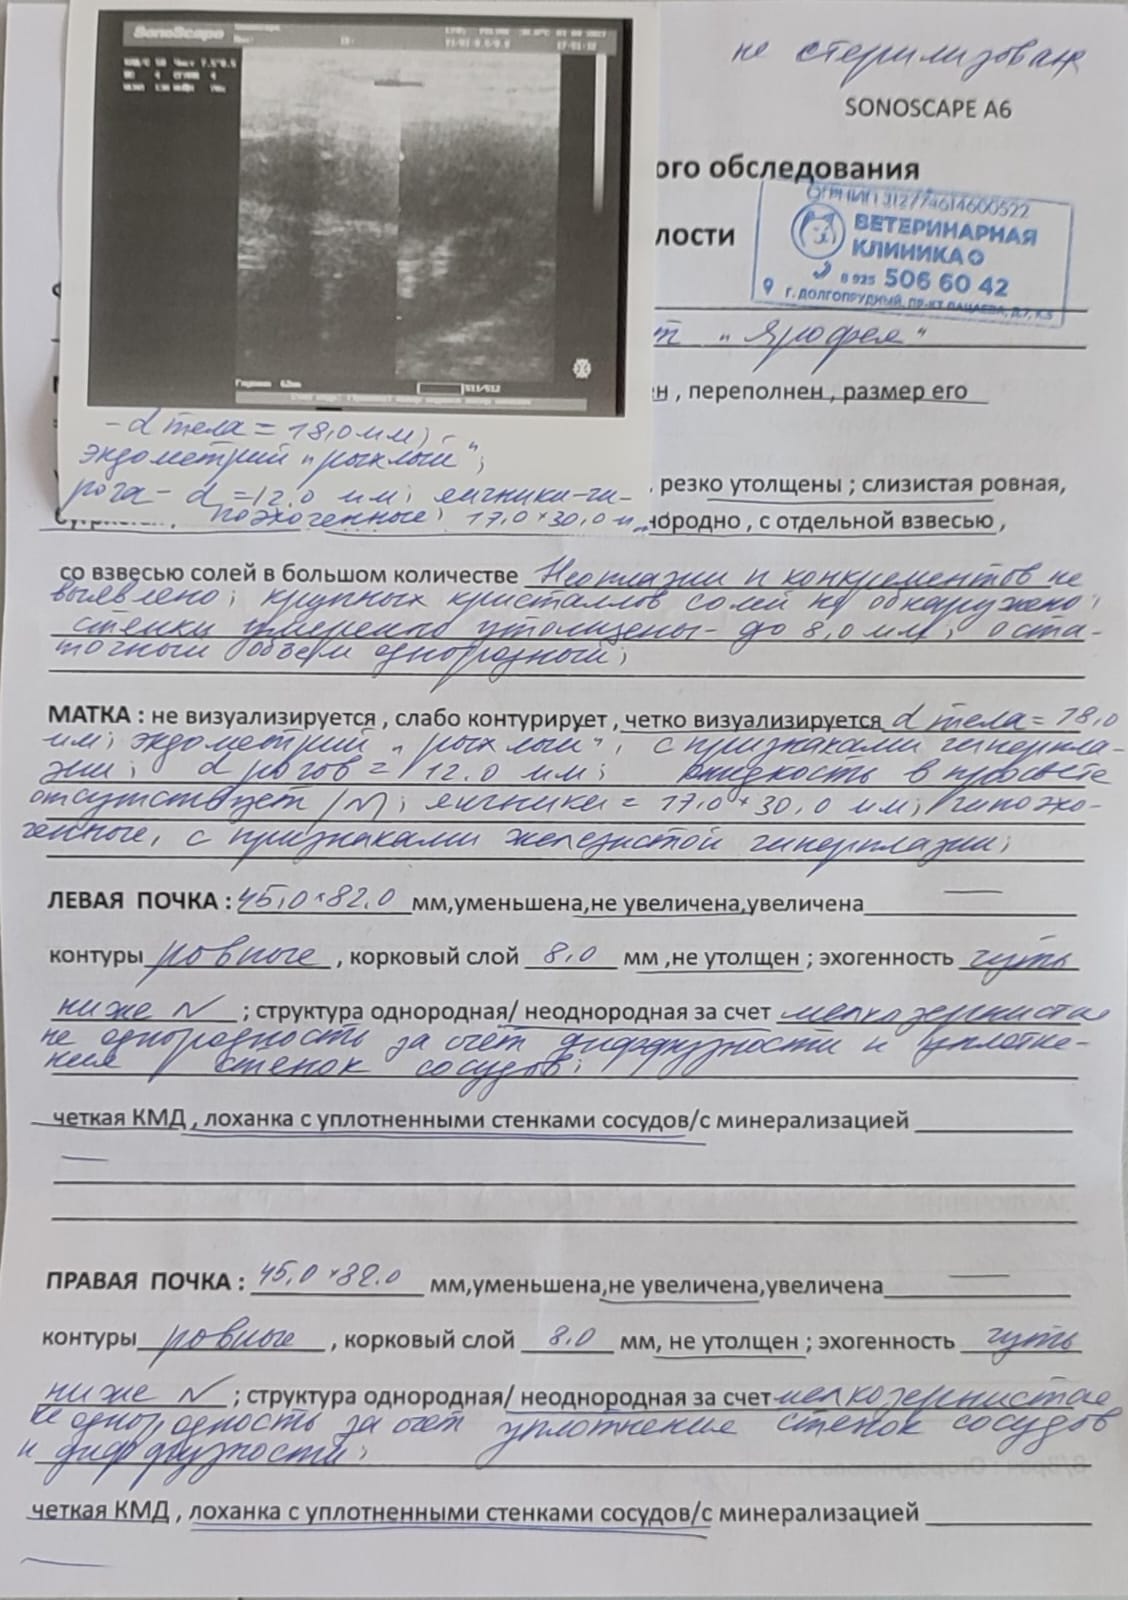 не стерилизован
SONOSCAPE A6
SonoScape
ого обследования
ОГРНИП 312774614600522
ВЕТЕРИНАРНАЯ
КЛИНИКА
лости
8 925 506 60 42
Г. ДОЛГОПРУДНЫЙ, ПР-КТ ПАЦАЕВА, Д.7, К.5
т "Ярофея"
н , переполнен , размер его
- d тела = 18,0 мм;
эндометрий "рыхлый";
, резко утолщены ; слизистая ровная,
рога - d = 12.0 мм; яичники - ги-
поэхогенные; 17,0 × 30,0 м
нородно , с отдельной взвесью ,
со взвесью солей в большом количестве Неоплазии и конкрементов не
выявлено; крупных кристаллов солей не обнаружено;
стенки умеренно утолщены - до 8,0 мм; оста-
точный объем однородный;
МАТКА : не визуализируется , слабо контурирует , четко визуализируется d тела = 18,0
мм; эндометрий "рыхлый", с признаками гиперпла-
зии; d рогов = 12.0 мм; жидкость в просвете
отсутствует /N/; яичники = 17,0 × 30,0 мм; гипоэхо-
генные, с признаками железистой гиперплазии;
ЛЕВАЯ ПОЧКА : 45,0 × 82.0 мм,уменьшена,не увеличена,увеличена
контуры ровные , корковый слой 8,0 мм ,не утолщен ; эхогенность чуть
ниже N ; структура однородная/ неоднородная за счет мелкозернистая
не однородность за счёт диффузности и уплотне-
ния стенок сосудов;
четкая КМД , лоханка с уплотненными стенками сосудов/с минерализацией
ПРАВАЯ ПОЧКА : 45,0 × 82.0 мм,уменьшена,не увеличена,увеличена
контуры ровные , корковый слой 8,0 мм, не утолщен ; эхогенность чуть
ниже N ; структура однородная/ неоднородная за счет мелкозернистая
не однородность за счёт уплотнения стенок сосудов
и диффузности;
четкая КМД , лоханка с уплотненными стенками сосудов/с минерализацией